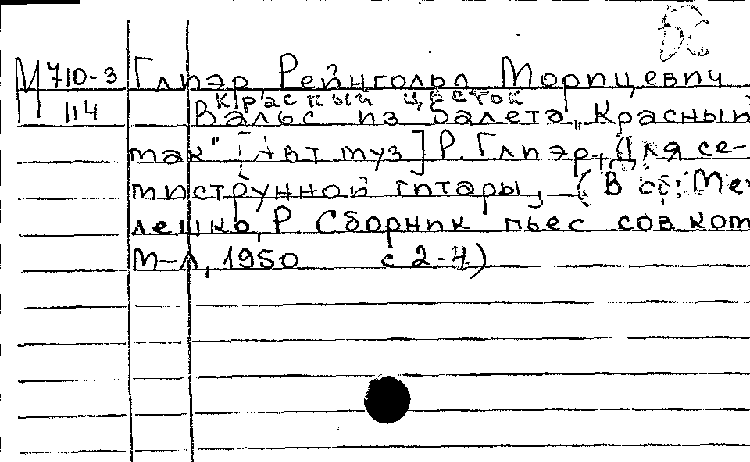 БС
М 710-3 Глиэр Рейнгольд Морицевич
114 Красный цветок
Вальс из балета „Красный
мак" [Авт муз] Р. Глиэр, Для се-
миструнной гитары, (В сб: Ме
лешко, Р. Сборник пьес сов ком
М-Л, 1950 с 2-4)